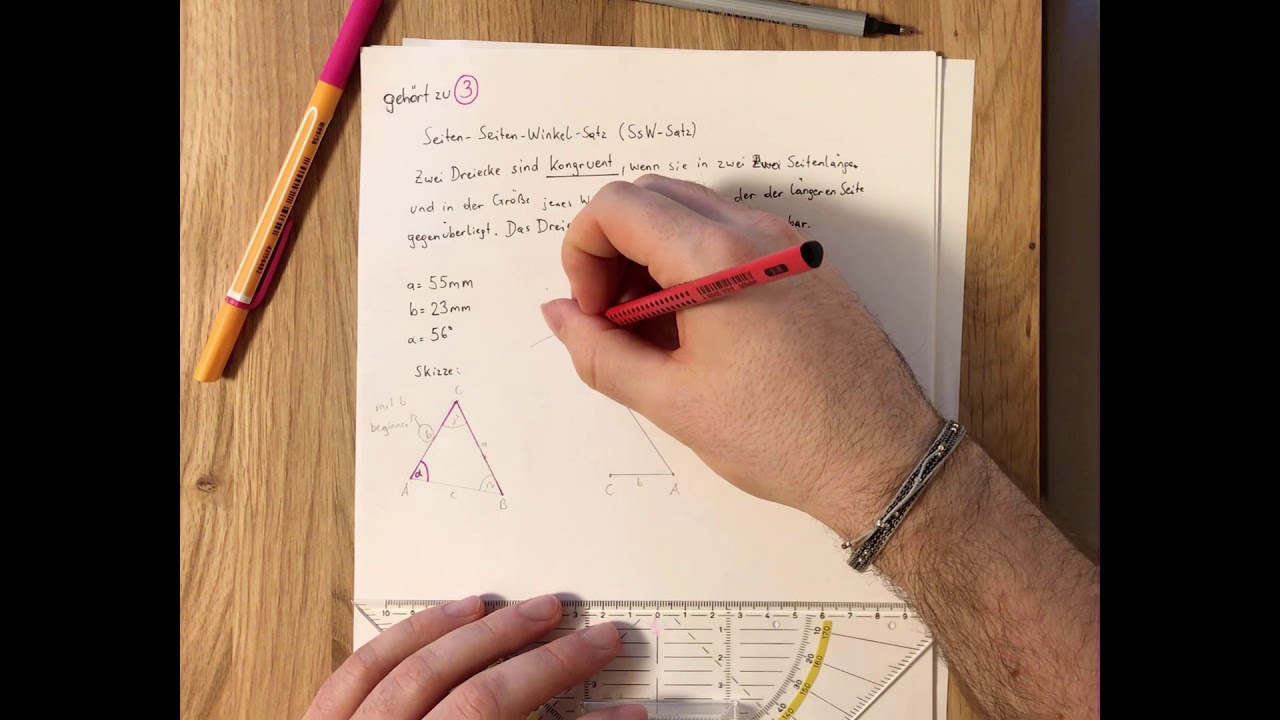 gehört zu 3
Seiten-Seiten-Winkel-Satz (SsW-Satz)
Zwei Dreiecke sind kongruent, wenn sie in zwei Seitenlängen
und in der Größe jenes der der längeren Seite
gegenüberliegt. Das bar.
a = 55mm
b = 23mm
α = 56°
Skizze:
mit b
beginnen
C
b
a
α
A
c
B
C
b
A
10
3
2
1
0
1
2
3
4
5
6
7
8
9
1
2
3
3
10
170
20
160
30
150
40
140